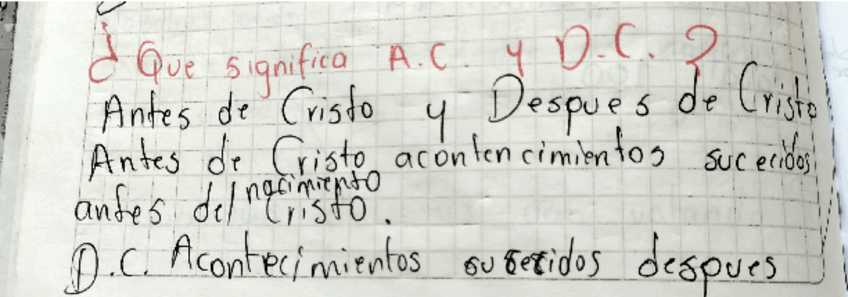 ¿ Que significa A.C. y D.C. ?
Antes de Cristo y Despues de Cristo
Antes de Cristo acontencimientos suceridos
antes del nacimiento Cristo.
D.C. Acontecimientos despues